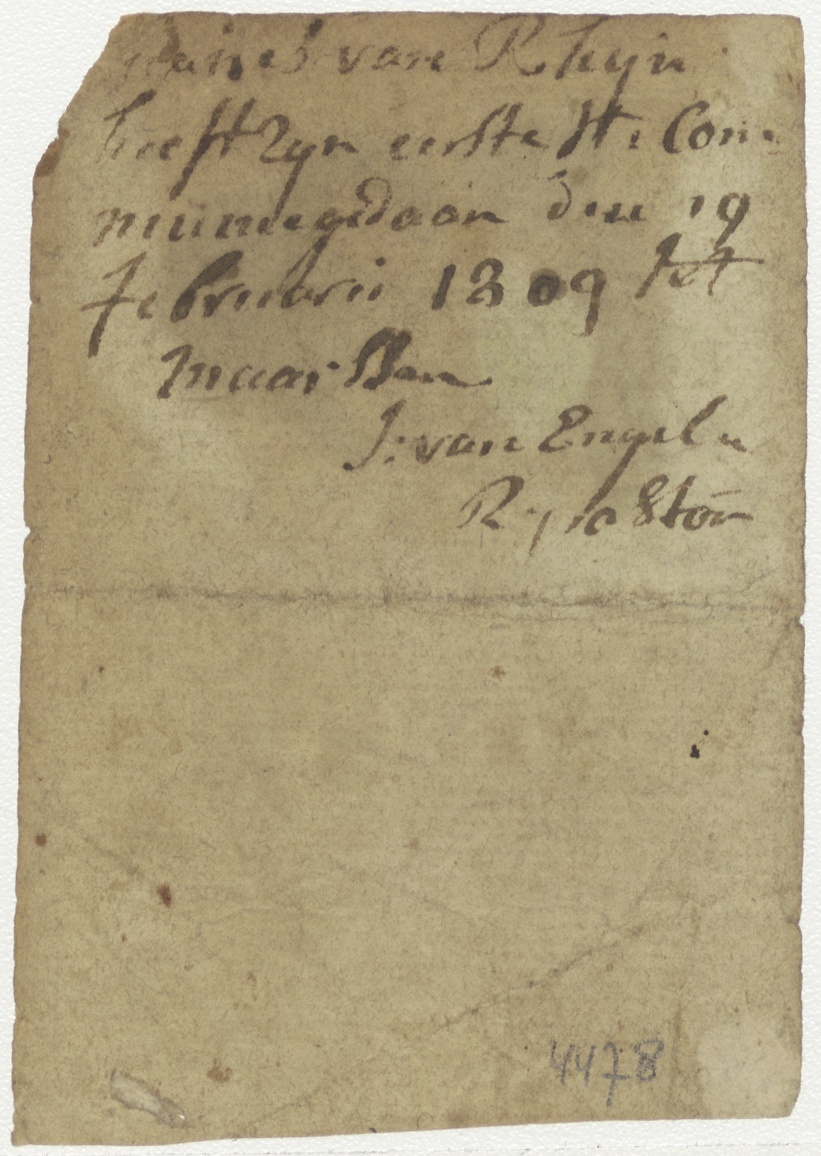 van Rheijn
heeft Zyn eerste H: Com:
muniegedaan den 19
Februarii 1809 tot
maarssen
J: van Engelen
R: pastōr
4478